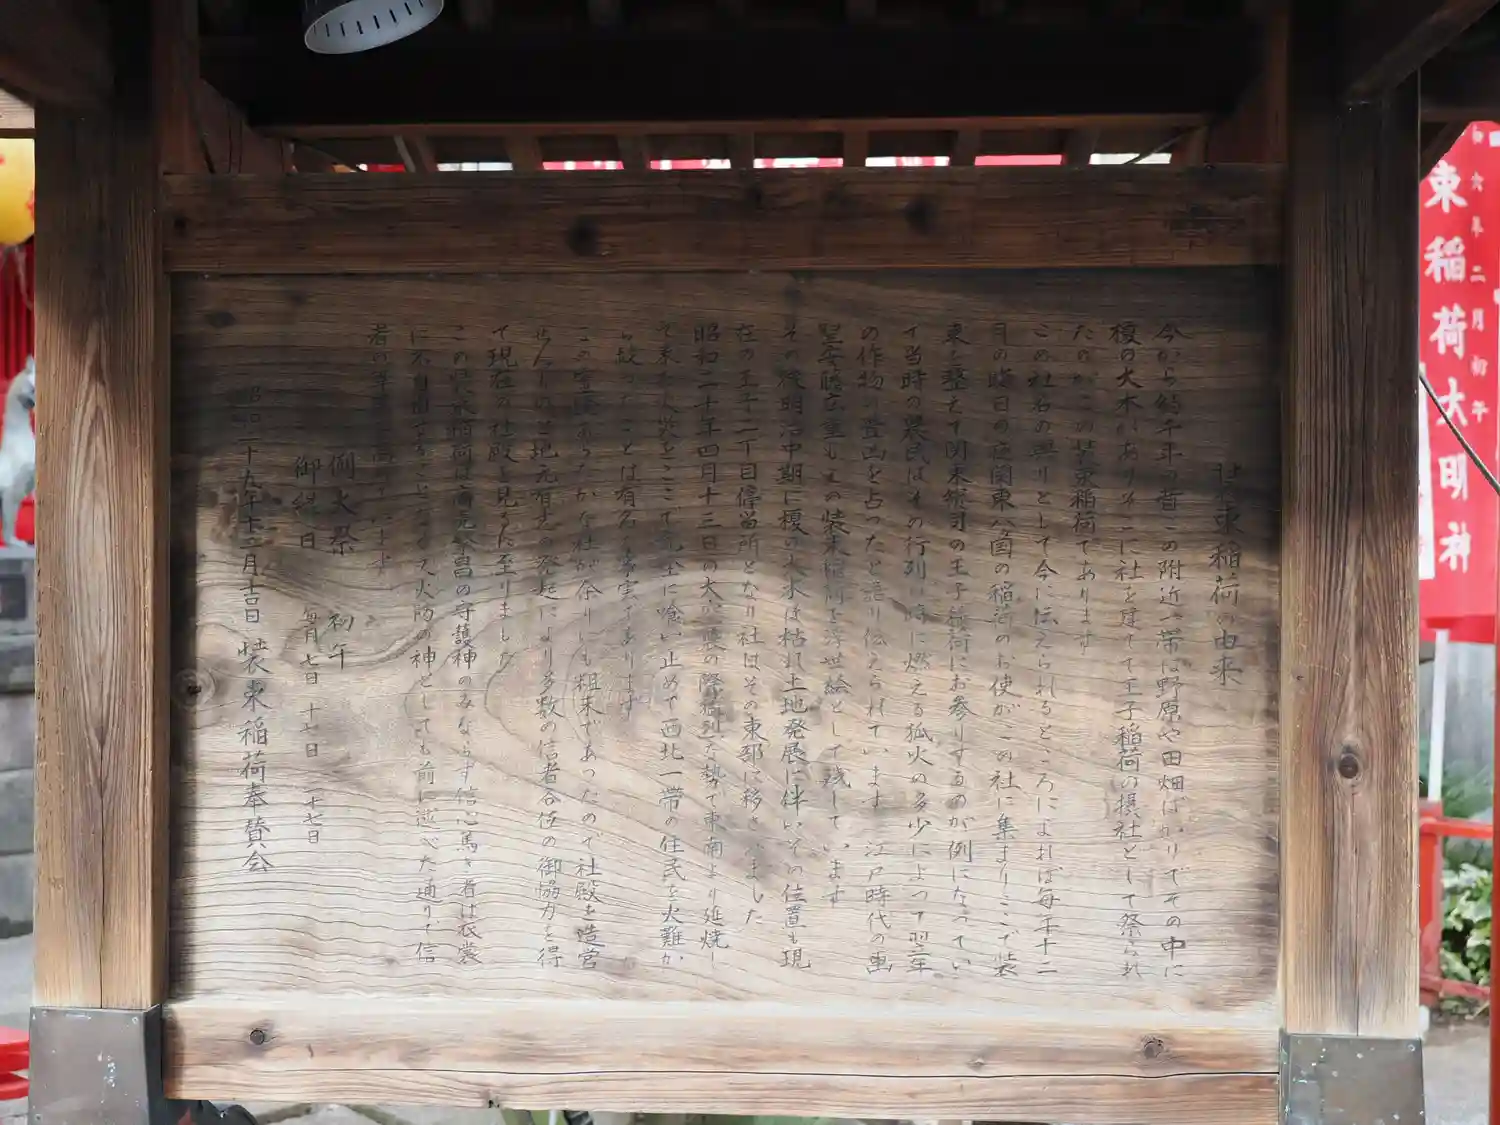 装束稲荷の由来
今から約千年の昔この附近一帯は野原や田畑ばかりでその中に
榎の大木がありそこに社を建てて王子稲荷の摂社として祭られ
たのがこの装束稲荷であります
この社名の興りとして今に伝えられるところによれば毎年十二
月の晦日の夜関東八国の稲荷のお使がこの社に集まりここで装
束を整えて関東総司の王子稲荷にお参りするのが例になってい
て当時の農民はその行列の時に燃える狐火の多少によって翌年
の作物の豊凶を占ったと語り伝えられています 江戸時代の画
聖安藤広重もこの装束稲荷を浮世絵として残しています
その後明治中期に榎の大木は枯れ土地発展に伴いその位置も現
在の王子二丁目停留所となり社はその東部に移されました
昭和二十年四月十三日の大空襲の際猛烈な勢で東南より延焼し
て来た火災をここで完全に喰い止めて西北一帯の住民を火難か
ら救ったことは有名な事実であります
この霊験あらたかな社が余りにも粗末であったので社殿を造営
せんものと地元有志の発起により多数の信者各位の御協力を得
て現在の社殿を見るに至りました
この装束稲荷は商売繁昌の守護神のみならず信心篤き者は衣裳
に不自由することなく又火防の神としても前に述べた通りで信
者の尊崇を
例大祭 初午
御縁日 毎月 七日 十七日 二十七日
昭和二十九年十二月
装束稲荷奉賛会
東稲荷大明神
六年二月初午